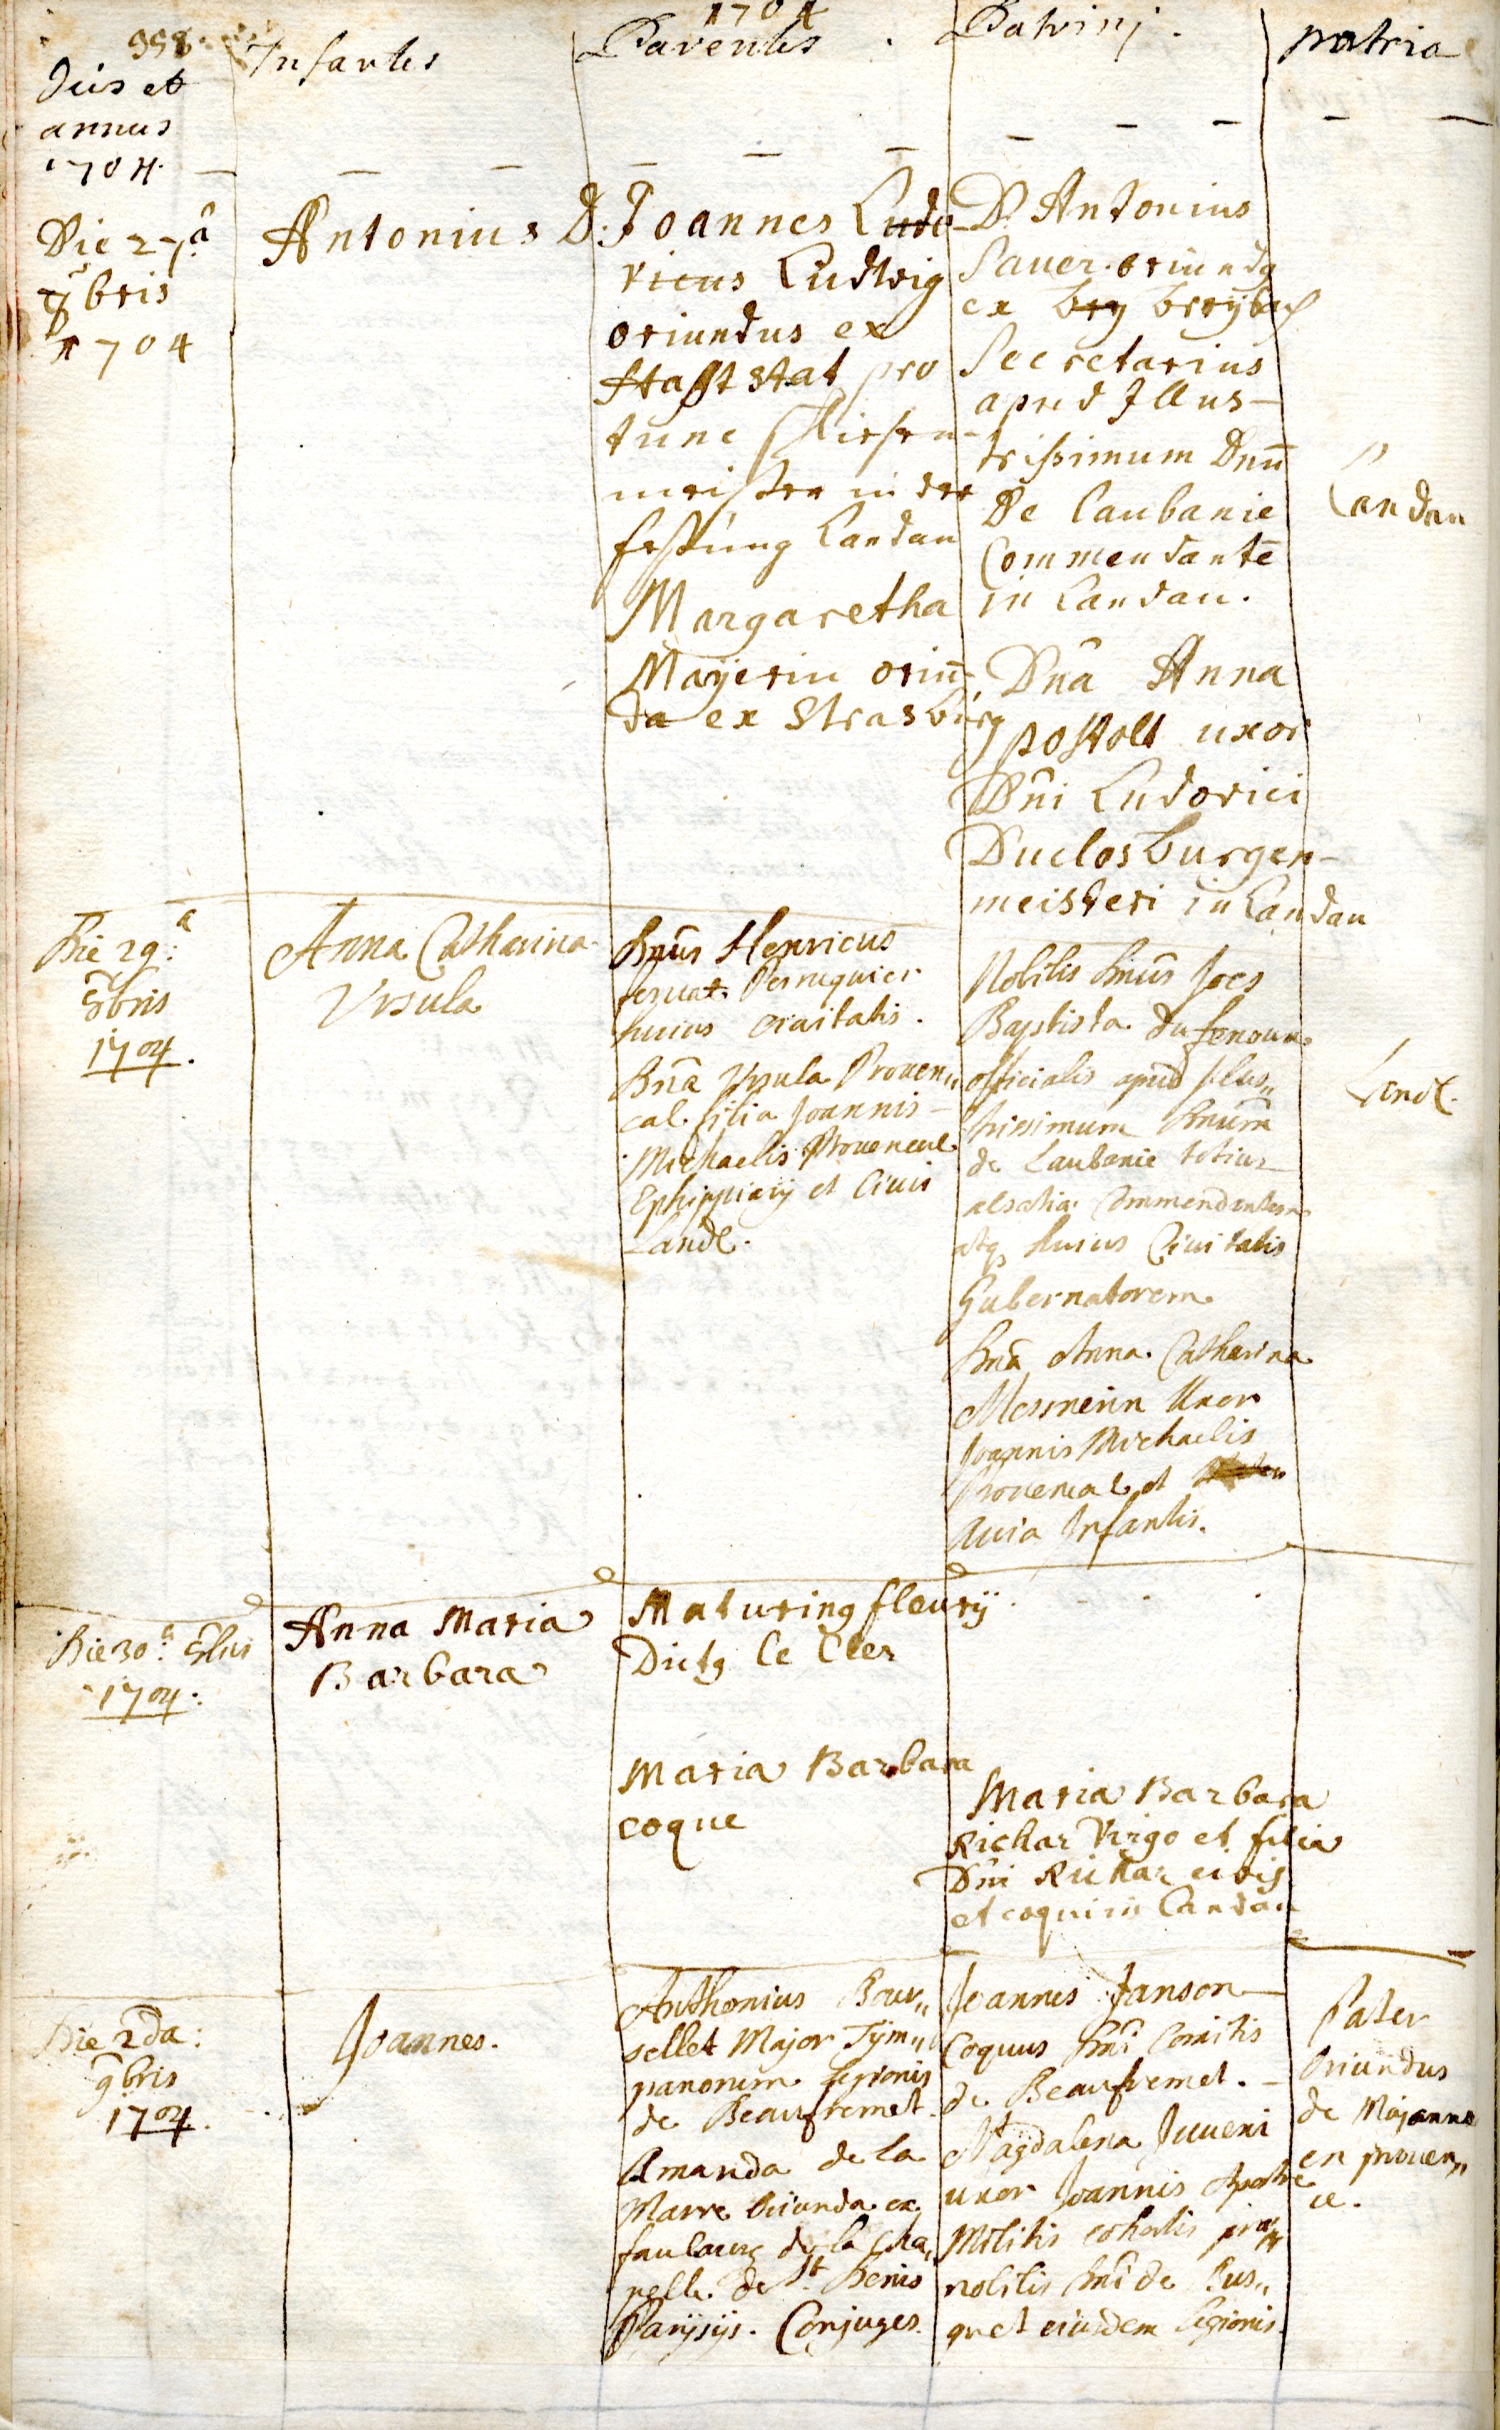 1704
998
Dies et
annus
1704.
Infantes
Parentes
Patrinj.
patria
Die 27.a
bris
1704
Antonius
D: Joannes Ludo-
vicus Ludwig
oriundus ex
stat pro
tunc
meister in der
festung Landau
Margaretha
Mayerin oriun-
da ex Strasburg
D. Antonius
Sauer oriundq
ex
Secretarius
apud Illus-
trissimum Dnu
De Laubanie
Commendante
in Landau.
Dna Anna
postolt uxor
Dni Ludovici
Duclos burgen-
meisteri in Landau
Landau
Die 29.a
bris
1704.
Anna Catharina
Vrsula
Dnus Henricus
Peruquier
huius ciuitatis.
Dna Vrsula Prouen„
cal. filia Joannis
Michaelis Prouencal
Ephippiarij et Ciuis
Land.
Nobilis Dnus Joes
Baptista du
officialis apud Illus„
trissimum Dnum
de Laubanie totius
alsatiae Commendantem
atq huius Ciuitatis
Gubernatorem
Dna Anna Catharina
Messnerin Uxor
Joannis Michaelis
Prouencal et
Auia Infantis.
Land.
Die 30.a bris
1704.
Anna Maria
Barbara
Maturing fleurij
Dictq le Cler
Maria Barbara
coque
Maria Barbara
Richar Virgo et filia
Dni Richar civis
et coqui in Landau
Die 2da:
9bris
1704.
Joannes.
Anthonius Bour„
sellet Major Tÿm„
panorum legionis
de Beaufremet.
Amanda de la
Marre Oriunda ex
faubourg de la Cha„
pelle de St Denis
Parijsijs. Conjuges.
Joannes Janson
Coquus Dni Comitis
de Beaufremet.
Magdalena Juueni
uxor Joannis
Militis cohortis
nobilis Dni de Bus„
quet eiusdem legionis.
Pater
Oriundus
de Majanne
en prouen„
ce.